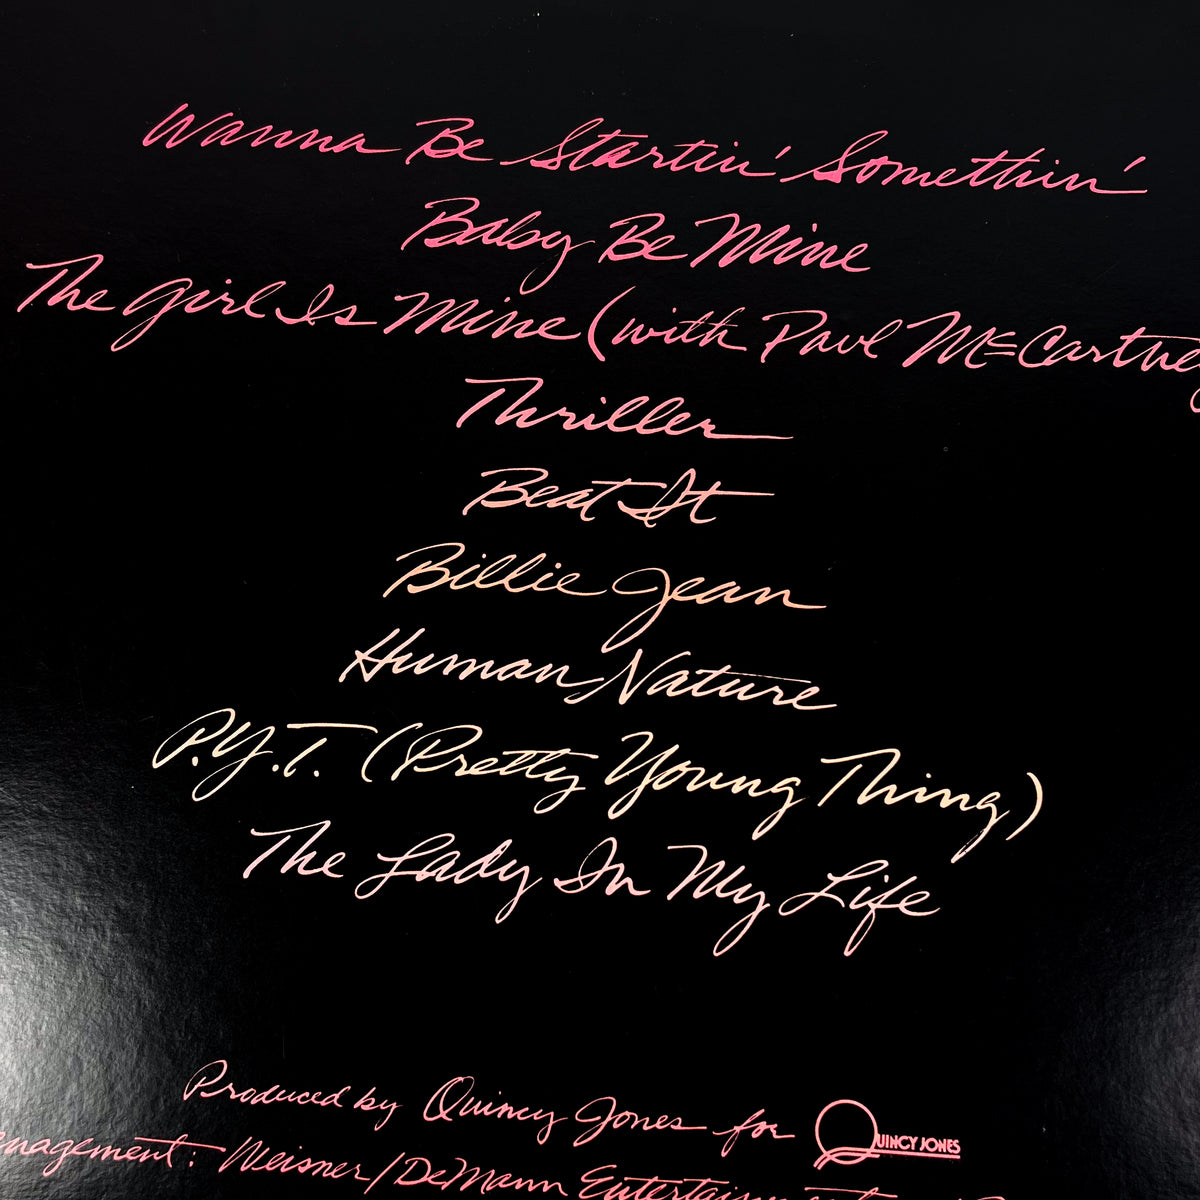 Wanna Be Startin' Somethin'
Baby Be Mine
The Girl Is Mine (with Paul McCartney
Thriller
Beat It
Billie Jean
Human Nature
P.Y.T. (Pretty Young Thing)
The Lady In My Life
Produced by Quincy Jones for QUINCY JONES
anagement: Weisner/DeMann Entertainment